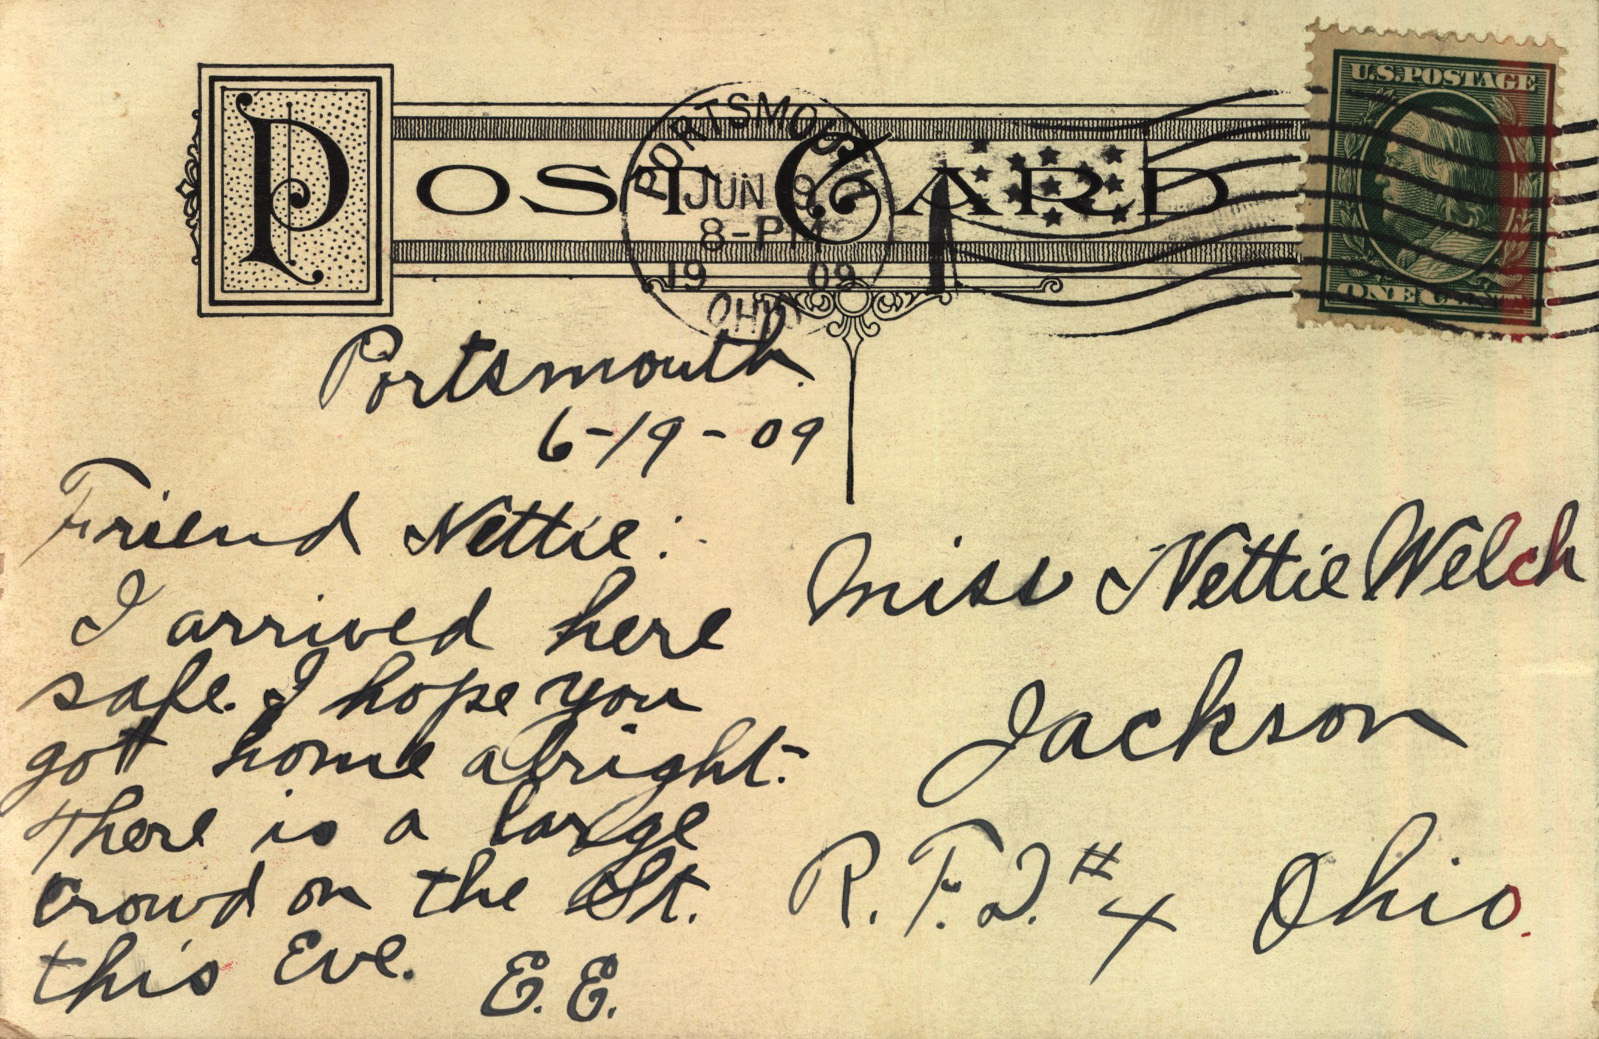 POST CARD
PORTSMOUTH
JUN 19
8-PM
1909
OHIO
U.S. POSTAGE
ONE CENT
Portsmouth.
6-19-09
Friend Nettie:
I arrived here
safe. I hope you
gott home alright.
There is a large
crowd on the St.
this Eve. E.E.
Miss Nettie Welch
Jackson
R.F.D. # 4 Ohio.